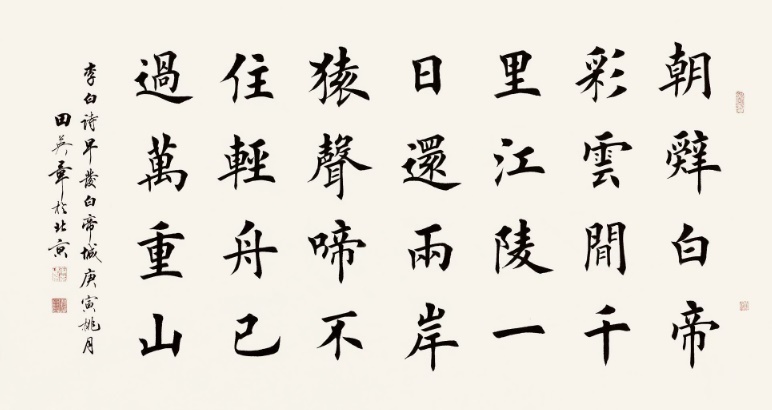 朝辭白帝
彩雲間千
里江陵一
日還兩岸
猿聲啼不
住輕舟已
過萬重山
李白詩早發白帝城庚寅桃月
田英章於北京